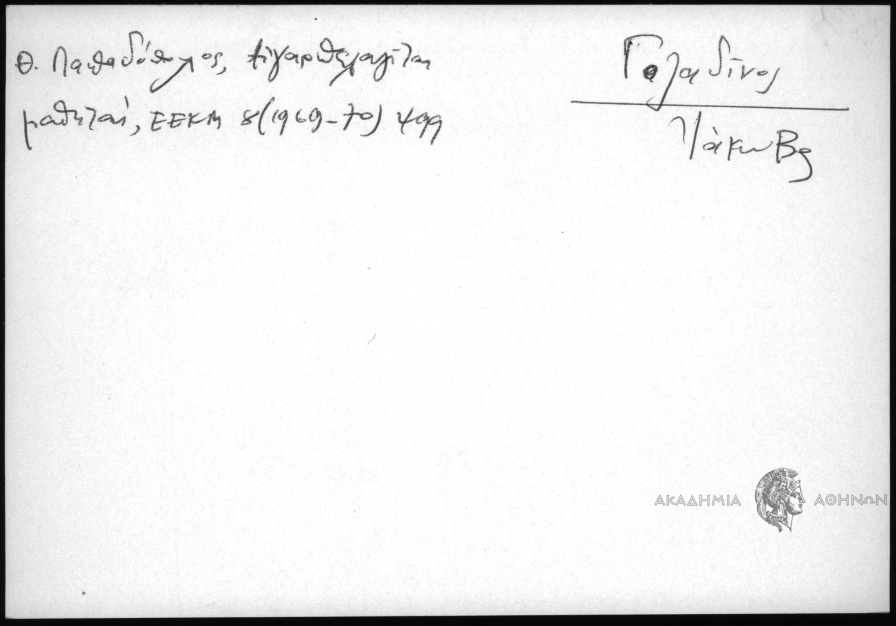 Θ. Παπαδόπουλος, Αιγαιοπελαγίται
μαθηταί, ΕΕΚΜ 8(1969-70) 499
Γαλαδίνος
Ἰάκωβος
ΑΚΑΔΗΜΙΑ ΑΘΗΝΩΝ